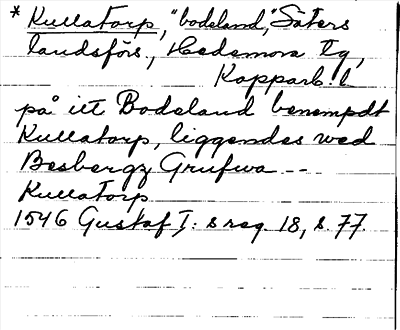 * Kullatorp, "bodeland," Säters
landsförs., Hedemora tlg,
Kopparb. l
på itt Bodeland benempdt
Kullatorp, liggendes wed
Besbergz Grufwa --
Kullatorp
1546 Gustaf I: s reg. 18, s. 77.